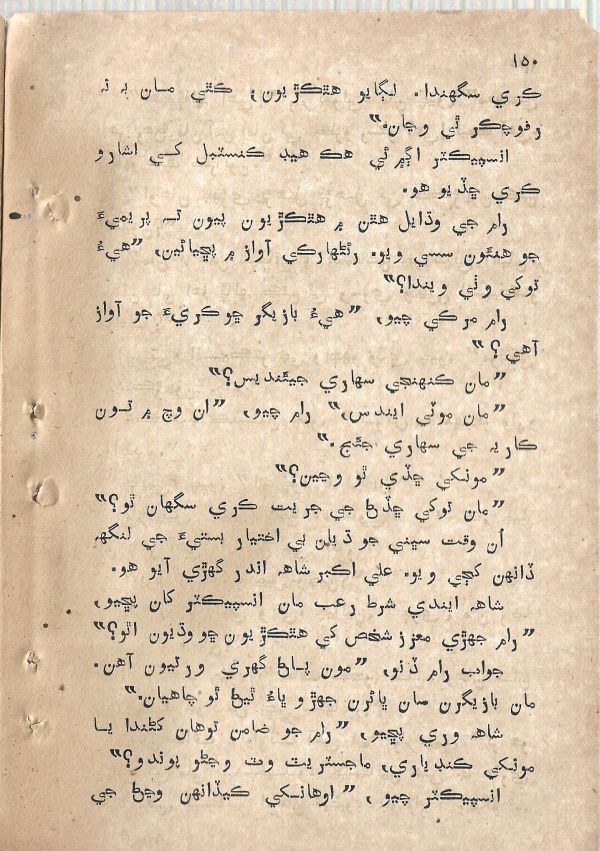 ١٥٠
ڪري سگهندا. لڳايو هٿڪڙيون، ڪٿي مان به نه
رفوچڪر ٿي وڃان.“
انسپيڪٽر اڳ ۾ ئي هڪ هيڊ ڪنسٽبل کي اشارو
ڪري ڇڏيو هو.
رام جي وڌايل هٿن ۾ هٿڪڙيون پيون ته پريميءَ
جو هنئون سسي ويو. رئڻهارڪي آواز ۾ پڇيائين، ”هيءُ
توکي وٺي ويندا؟“
رام مرڪي چيو، ”هيءُ بازيگر ڇوڪريءَ جو آواز
آهي؟“
”مان ڪنهنجي سهاري جيئنديس؟“
”مان موٽي ايندس،“ رام چيو، ”ان وچ ۾ تون
ڪاريه جي سهاري جئج.“
”مونکي ڇڏي ٿو وڃين؟“
”مان توکي ڇڏڻ جي جريت ڪري سگهان ٿو؟“
اُن وقت سڀني جو ڌيان بي اختيار بستيءَ جي لنگهه
ڏانهن کڄي ويو. علي اڪبر شاهه اندر گهڙي آيو هو.
شاهه ايندي شرط رعب مان انسپيڪٽر کان پڇيو،
”رام جهڙي معزز شخص کي هٿڪڙيون ڇو وڌيون اٿو؟“
جواب رام ڏنو، ”مون پاڻ گهري ورتيون آهن.
مان بازيگرن سان ڀائرن جهڙو ڀاءُ ٿيڻ ٿو چاهيان.“
شاهه وري پڇيو، ”رام جو ضامن توهان کڻندا يا
مونکي ڪنڊياري، ماجسٽريٽ وٽ وڃڻو پوندو؟“
انسپيڪٽر چيو، ”اوهانکي ڪيڏانهن وڃڻ جي